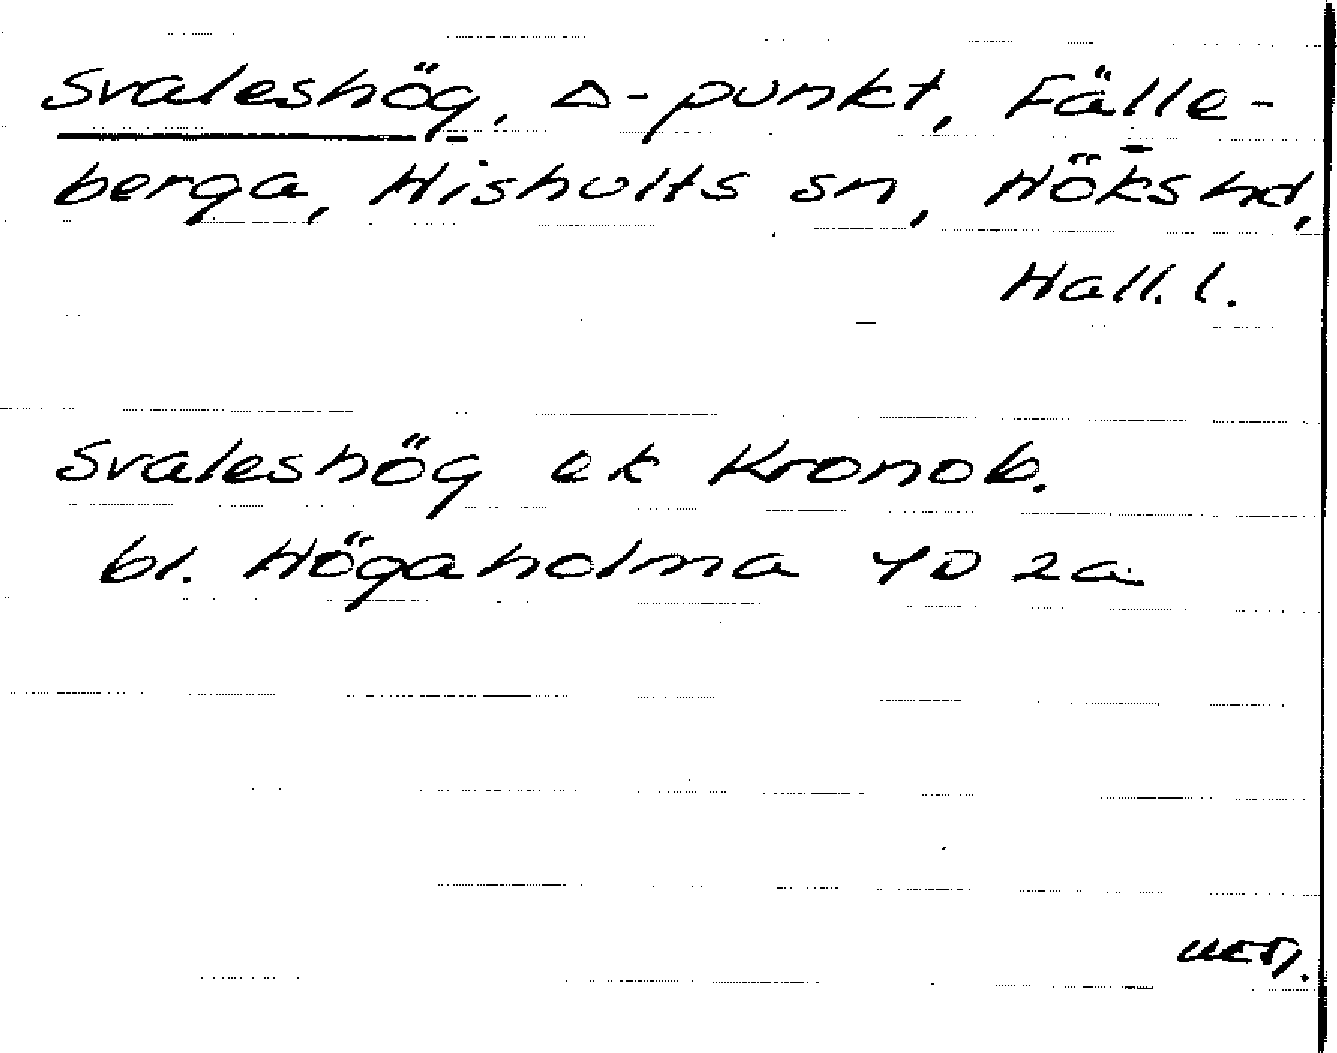 Svaleshög, △-punkt, Fälle-
berga, Hishults sn, Höks hd,
Hall. l.
Svaleshög ek Kronob.
bl. Högaholma 4D 2a